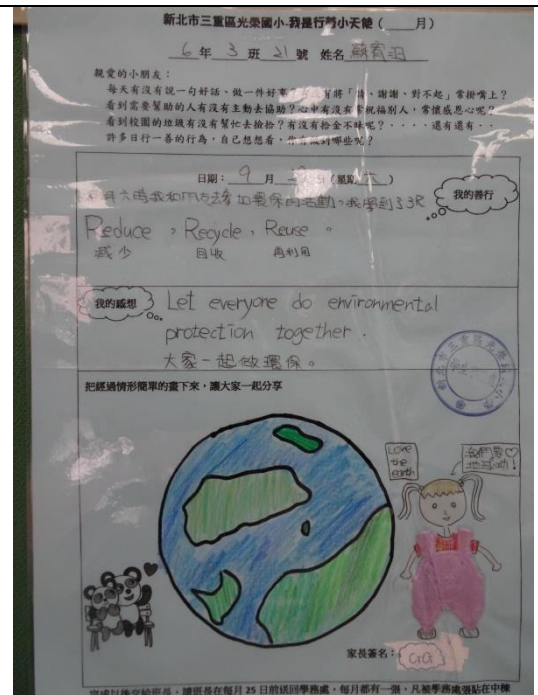 新北市三重區光榮國小-我是行善小天使（　　月）
6 年 3 班 21 號 姓名 蘇宥
親愛的小朋友：
每天有沒有說一句好話、做一件好事？有沒有將「請、謝謝、對不起」常掛嘴上？
看到需要幫助的人有沒有主動去協助？心中有沒有常祝福別人，常懷感恩心呢？
看到校園的垃圾有沒有幫忙去撿拾？有沒有拾金不昧呢？．．．．還有還有．．
許多日行一善的行為，自己想想看，你有做到哪些呢？
日期：9 月 (星期六)
我的善行
六時我和去參加環保的活動。我學到了3R
Reduce，Recycle，Reuse。
減少 回收 再利用
我的感想
Let everyone do environmental
protection together.
大家一起做環保。
把經過情形簡單的畫下來，讓大家一起分享
Love
the
earth
我們要♡
地球喲！
家長簽名：
完成以後交給班長，請班長在每月 25 日前送回學務處，每月都有一張，凡被學務處張貼在中棟